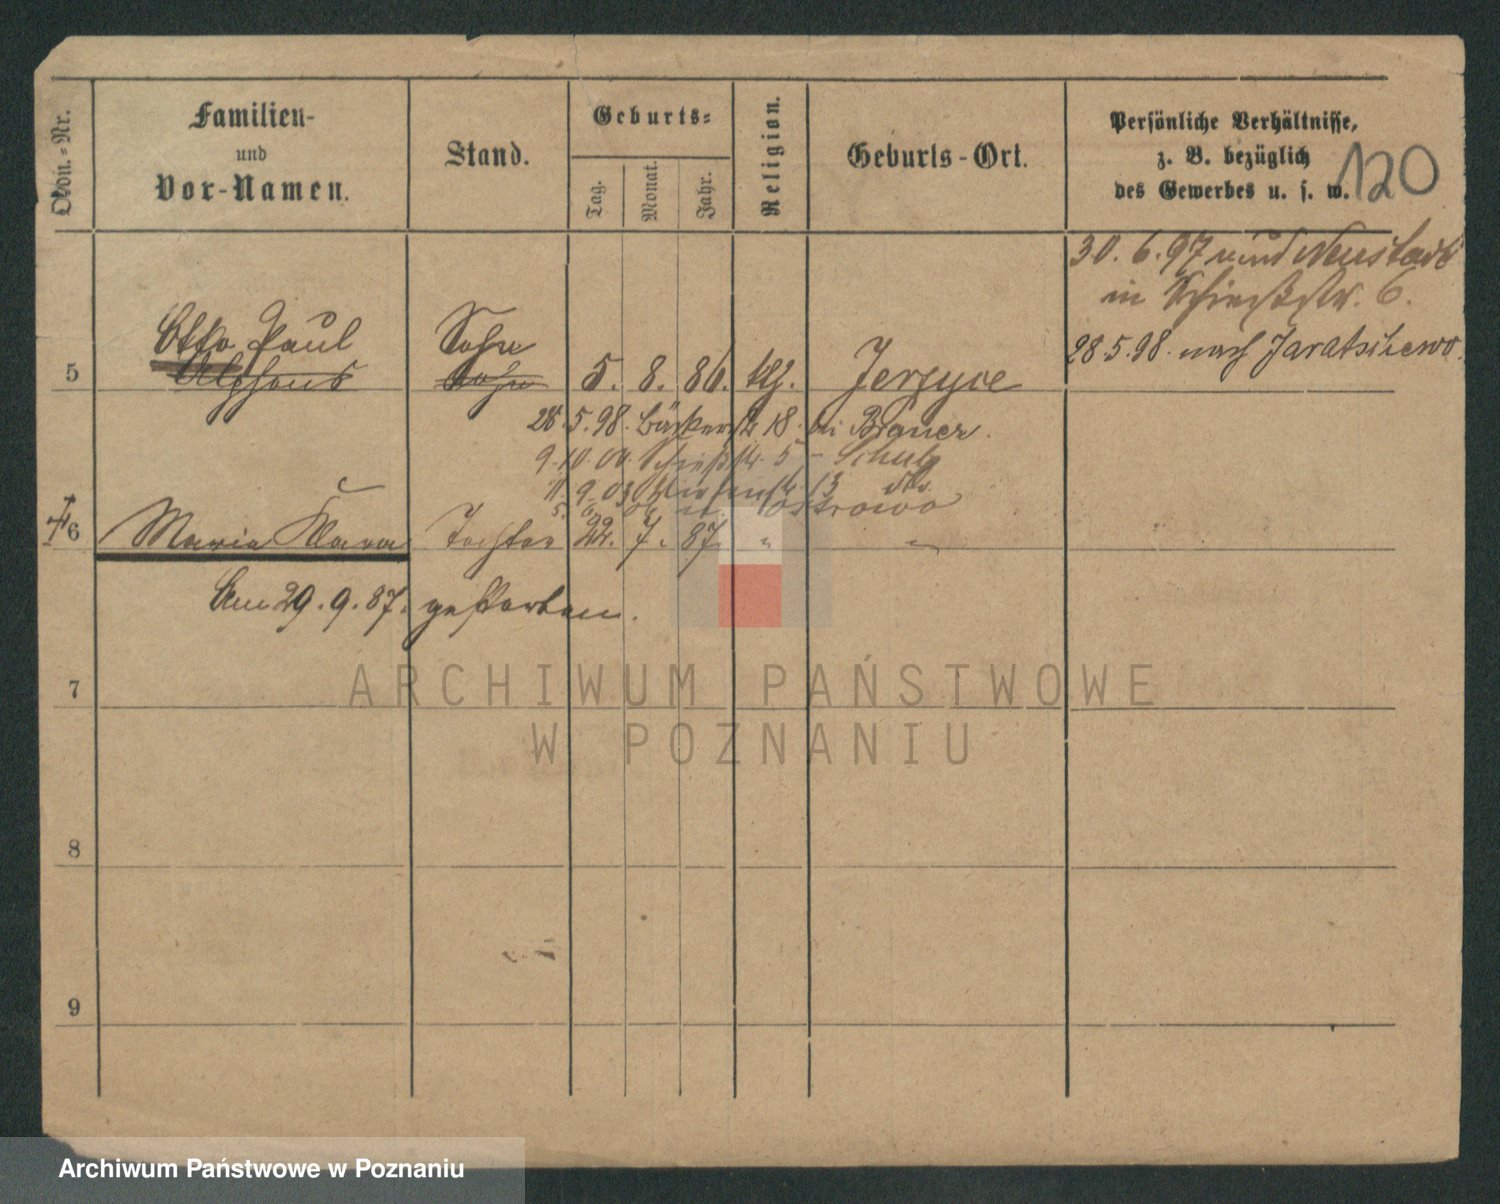 Ordn.-Nr.
Familien-
und
Vor-Namen.
Stand.
Geburts-
Tag.
Monat.
Jahr.
Religion.
Geburts-Ort.
Persönliche Verhältnisse,
z. B. bezüglich
des Gewerbes u. s. w.
120
30. 6. 97 Neustadt
in 6.
28.5.98. nach Jaratschewo.
5
Otto Paul
Alphons
Sohn
Sohn
5. 8. 86. klg. Jerzyce
28.5.98. Bäckerstr 18. bei Brauer.
9.10.00. Schießstr. 5 Schulz
11.9.03 13 do.
Ostrowo
6 Maria Klara Tochter 22. 7. 87. " "
Am 29. 9. 87. gestorben.
7
8
9
ARCHIWUM PAŃSTWOWE
W POZNANIU
Archiwum Państwowe w Poznaniu